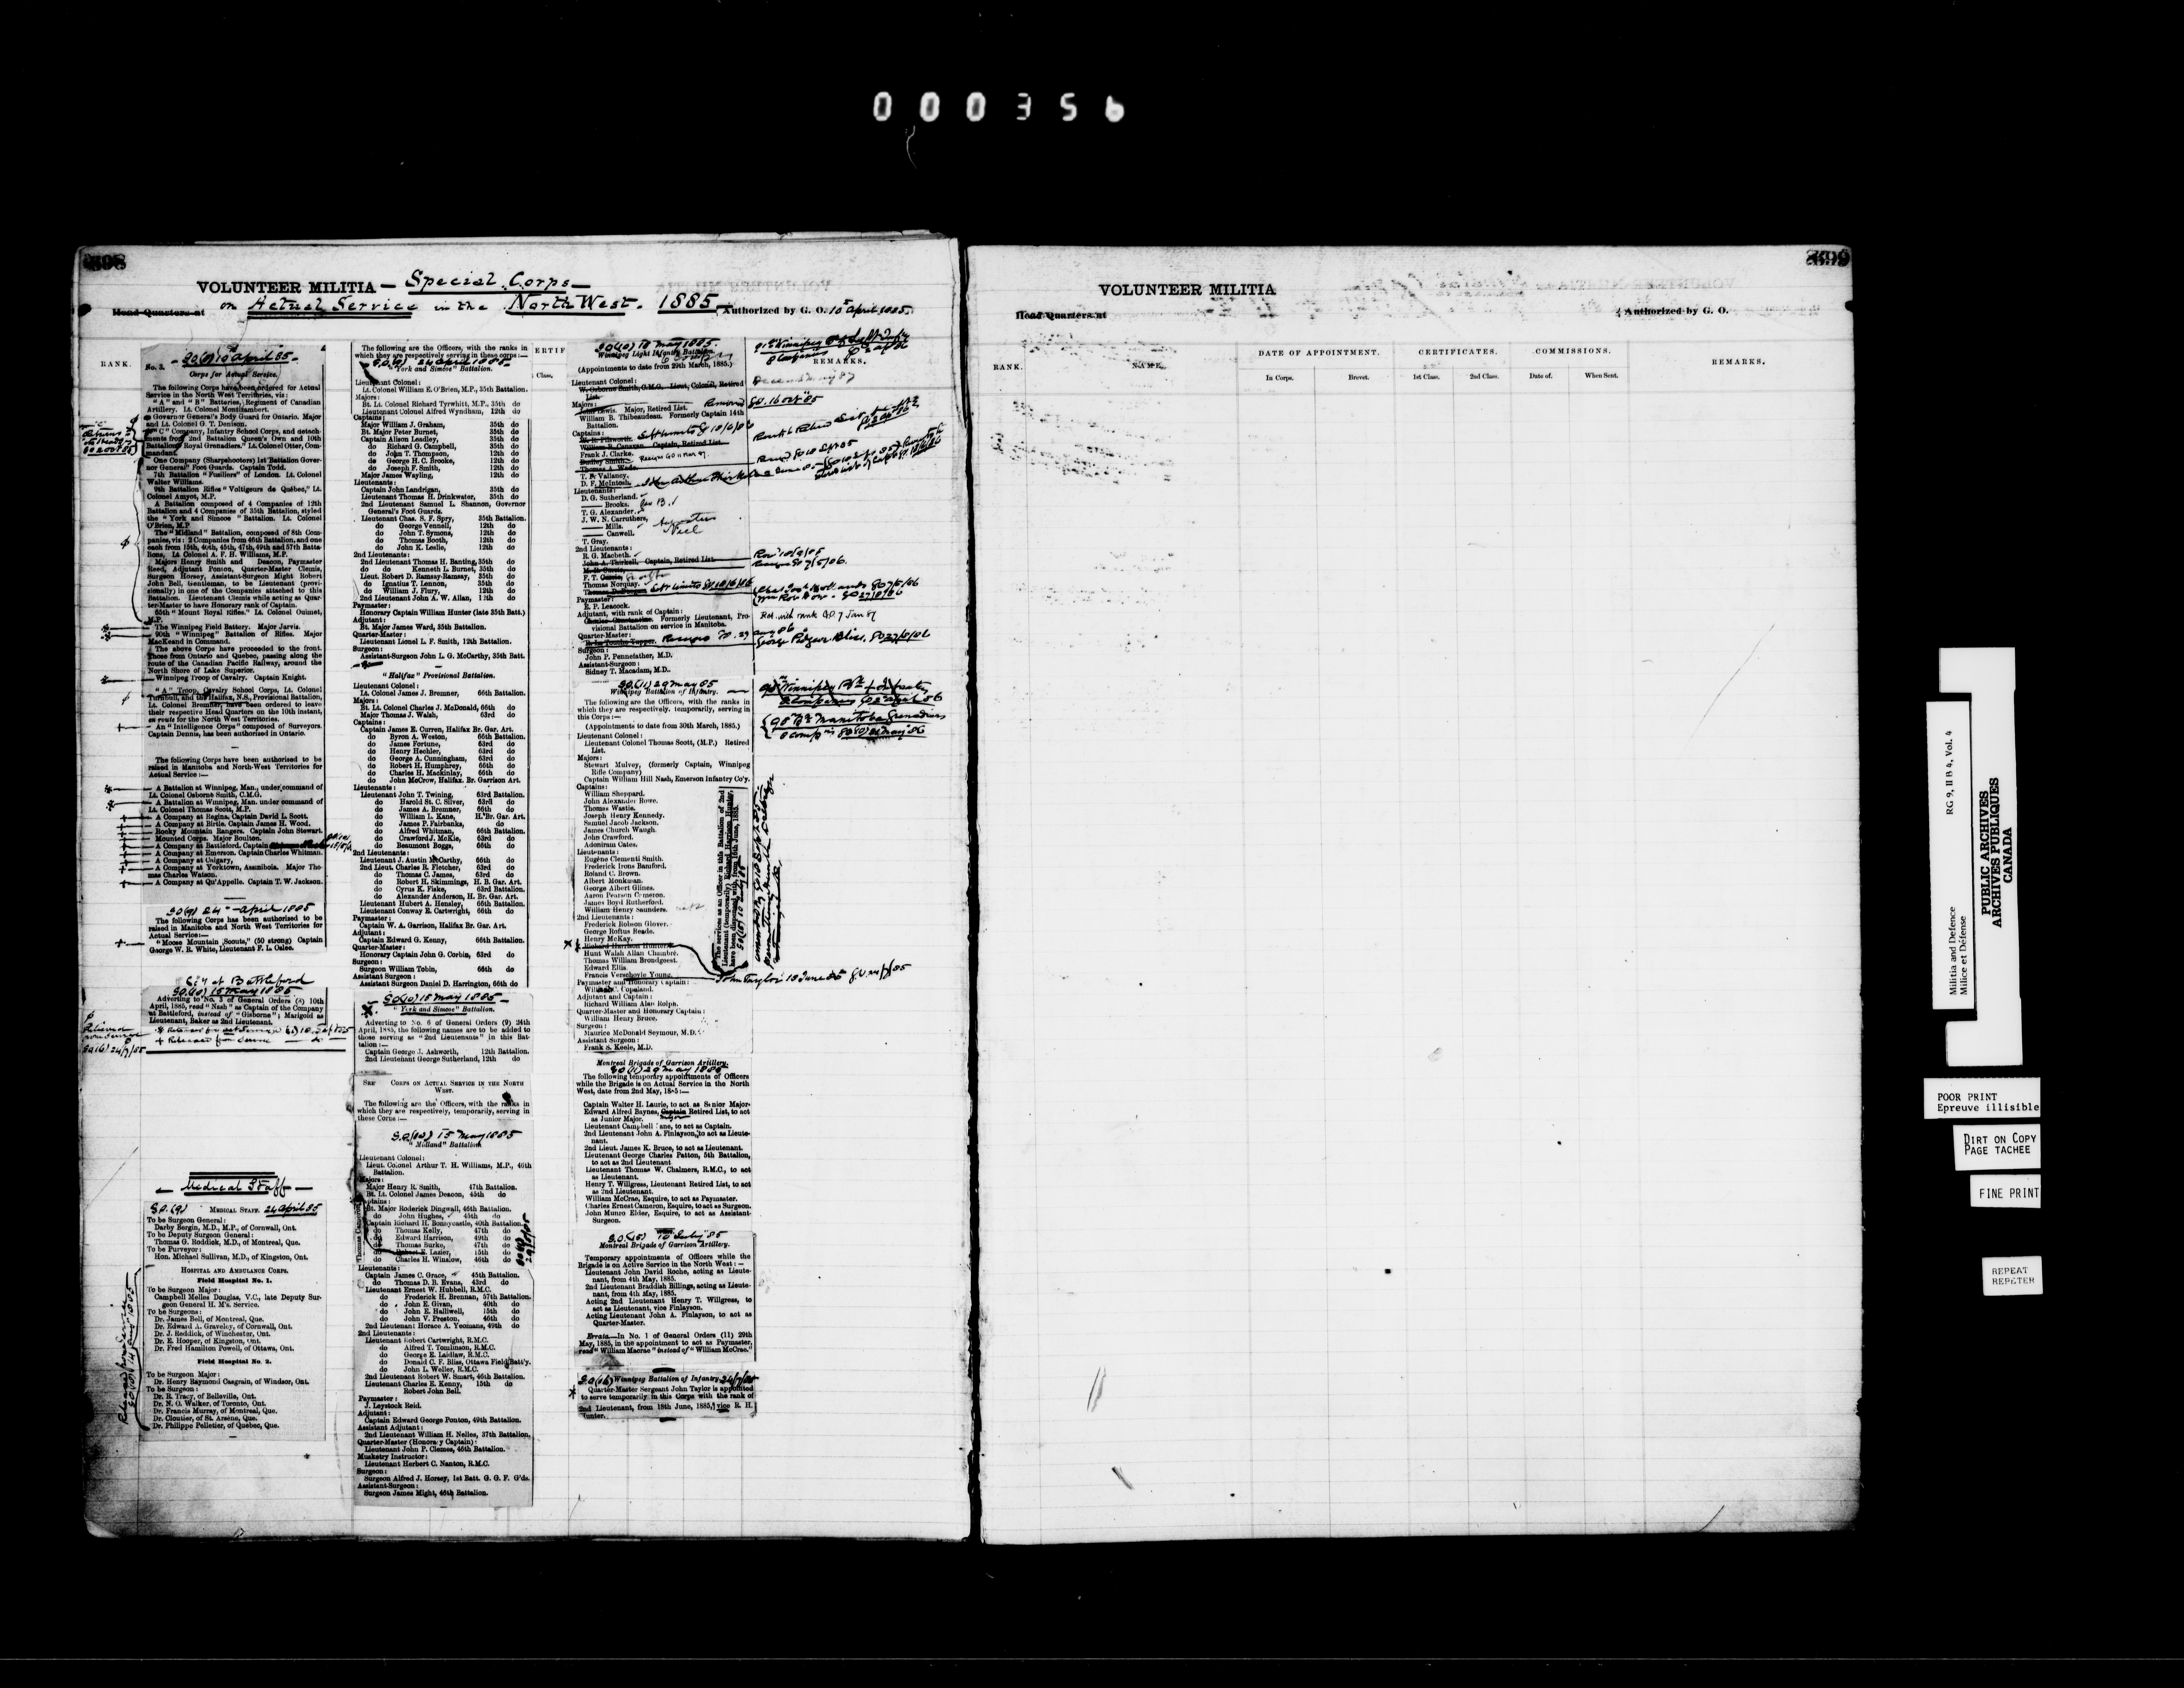 000356
398
VOLUNTEER MILITIA — Special Corps —
on Actual Service in the North West. 1885
Head-Quarters at
Authorized by G. O. 10 April 1885.
RANK.
G.O.(8) 10 April 85
No. 3.
Corps for Actual Service.
The following Corps have been ordered for Actual
Service in the North West Territories, viz:
"A" and "B" Batteries, Regiment of Canadian
Artillery. Lt. Colonel Montizambert.
Governor General's Body Guard for Ontario. Major
and Lt. Colonel G. T. Denison.
"C" Company, Infantry School Corps, and detach-
ments from 2nd Battalion Queen's Own and 10th
Battalion "Royal Grenadiers." Lt. Colonel Otter, Com-
mandant.
One Company (Sharpshooters) 1st Battalion Gover-
nor General's Foot Guards. Captain Todd.
7th Battalion "Fusiliers" of London. Lt. Colonel
Walter Williams.
9th Battalion Rifles "Voltigeurs de Québec," Lt.
Colonel Amyot, M.P.
A Battalion composed of 4 Companies of 12th
Battalion and 4 Companies of 35th Battalion, styled
the "York and Simcoe" Battalion. Lt. Colonel
O'Brien, M.P.
The "Midland" Battalion, composed of 8th Com-
panies, viz: 2 Companies from 46th Battalion, and one
each from 15th, 40th, 45th, 47th, 49th and 57th Batta-
lions, Lt. Colonel A. F. H. Williams, M.P.
Majors Henry Smith and Deacon, Paymaster
Reed, Adjutant Ponton, Quarter-Master Clemis,
Surgeon Horsey, Assistant-Surgeon Might Robert
John Bell, Gentleman, to be Lieutenant (provi-
sionally) in one of the Companies attached to this
Battalion. Lieutenant Clemis while acting as Quar-
ter-Master to have Honorary rank of Captain.
65th "Mount Royal Rifles." Lt. Colonel Ouimet,
M.P.
The Winnipeg Field Battery. Major Jarvis.
90th "Winnipeg" Battalion of Rifles. Major
MacKeand in Command.
The above Corps have proceeded to the front.
Those from Ontario and Quebec, passing along the
route of the Canadian Pacific Railway, around the
North Shore of Lake Superior.
Winnipeg Troop of Cavalry. Captain Knight.
"A" Troop, Cavalry School Corps, Lt. Colonel
Turnbull, and the Halifax, N.S., Provisional Battalion,
Lt. Colonel Bremner, have been ordered to leave
their respective Head Quarters on the 10th instant,
en route for the North West Territories.
An "Intelligence Corps" composed of Surveyors.
Captain Dennis, has been authorised in Ontario.
The following Corps have been authorised to be
raised in Manitoba and North-West Territories for
Actual Service:—
A Battalion at Winnipeg, Man., under command of
Lt. Colonel Osborne Smith, C.M.G.
A Battalion at Winnipeg, Man. under command of
Lt. Colonel Thomas Scott, M.P.
A Company at Regina. Captain David L. Scott.
A Company at Birtle. Captain James H. Wood.
Rocky Mountain Rangers. Captain John Stewart.
Mounted Corps. Major Boulton.
A Company at Battleford. Captain
A Company at Emerson. Captain Charles Whitman.
A Company at Calgary,
A Company at Yorktown, Assiniboia. Major Tho-
mas Charles Watson.
A Company at Qu'Appelle. Captain T. W. Jackson.
G.O.(9) 24 April 1885
The following Corps has been authorised to be
raised in Manitoba and North West Territories for
Actual Service:—
"Moose Mountain Scouts," (50 strong) Captain
George W. R. White, Lieutenant F. L. Oslee.
Co'y at Battleford
G.O.(10) 15 May 1885
Adverting to No. 3 of General Orders (8) 10th
April, 1885, read "Nash" as Captain of the Company
at Battleford, instead of "Gisborne"; Marigold as
Lieutenant, Baker as 2nd Lieutenant.
Medical Staff
G.O.(9) MEDICAL STAFF. 24 April 85
To be Surgeon General:
Darby Bergin, M.D., M.P., of Cornwall, Ont.
To be Deputy Surgeon General:
Thomas G. Roddick, M.D., of Montreal, Que.
To be Purveyor:
Hon. Michael Sullivan, M.D., of Kingston, Ont.
HOSPITAL AND AMBULANCE CORPS.
Field Hospital No. 1.
To be Surgeon Major:
Campbell Melles Douglas, V.C., late Deputy Sur-
geon General H. M's. Service.
To be Surgeons:
Dr. James Bell, of Montreal, Que.
Dr. Edward A. Graveley, of Cornwall, Ont.
Dr. J. Reddick, of Winchester, Ont.
Dr. E. Hooper, of Kingston, Ont.
Dr. Fred Hamilton Powell, of Ottawa, Ont.
Field Hospital No. 2.
To be Surgeon Major:
Dr. Henry Raymond Casgrain, of Windsor, Ont.
To be Surgeon:
Dr. R. Tracy, of Belleville, Ont.
Dr. N. O. Walker, of Toronto, Ont.
Dr. Francis Murray, of Montreal, Que.
Dr. Cloutier, of St. Arsène, Que.
Dr. Philippe Pelletier, of Quebec, Que.
The following are the Officers, with the ranks in
which they are respectively serving in these corps:—
G.O.(9) 24 April 1885
"York and Simcoe" Battalion.
Lieutenant Colonel:
Lt. Colonel William E. O'Brien, M.P., 35th Battalion.
Majors:
Bt. Lt. Colonel Richard Tyrwhitt, M.P., 35th do
Lieutenant Colonel Alfred Wyndham, 12th do
Captains:
Major William J. Graham, 35th do
Bt. Major Peter Burnet, 35th do
Captain Alison Leadley, 35th do
do Richard G. Campbell, 35th do
do John T. Thompson, 12th do
do George H. C. Brooke, 12th do
do Joseph F. Smith, 12th do
Major James Wayling, 12th do
Lieutenants:
Captain John Landrigan, 35th do
Lieutenant Thomas H. Drinkwater, 35th do
2nd Lieutenant Samuel L. Shannon, Governor
General's Foot Guards.
Lieutenant Chas. S. F. Spry, 35th Battalion.
do George Vennell, 12th do
do John T. Symons, 12th do
do Thomas Booth, 12th do
do John K. Leslie, 12th do
2nd Lieutenants:
2nd Lieutenant Thomas H. Banting, 35th do
do do Kenneth L. Burnet, 35th do
Lieut. Robert D. Ramsay-Ramsay, 35th do
do Ignatius T. Lennon, 35th do
do William J. Flury, 12th do
2nd Lieutenant John A. W. Allan, 12th do
Paymaster:
Honorary Captain William Hunter (late 35th Batt.)
Adjutant:
Bt. Major James Ward, 35th Battalion.
Quarter-Master:
Lieutenant Lionel L. F. Smith, 12th Battalion.
Surgeon:
Assistant-Surgeon John L. G. McCarthy, 35th Batt.
"Halifax" Provisional Battalion.
Lieutenant Colonel:
Lt. Colonel James J. Bremner, 66th Battalion.
Majors:
Bt. Lt. Colonel Charles J. McDonald, 66th do
Major Thomas J. Walsh, 63rd do
Captains:
Captain James E. Curren, Halifax Br. Gar. Art.
do Byron A. Weston, 66th Battalion.
do James Fortune, 63rd do
do Henry Hechler, 63rd do
do George A. Cunningham, 63rd do
do Robert H. Humphrey, 66th do
do Charles H. Mackinlay, 66th do
do John McCrow, Halifax. Br. Garrison Art.
Lieutenants:
Lieutenant John T. Twining, 63rd Battalion.
do Harold St. C. Silver, 63rd do
do James A. Bremner, 66th do
do William L. Kane, H. Br. Gar. Art.
do James P. Fairbanks, do
do Alfred Whitman, 66th Battalion.
do Crawford J. McKie, 63rd do
do Beaumont Boggs, 66th do
2nd Lieutenants:
Lieutenant J. Austin McCarthy, 66th do
2nd Lieut. Charles R. Fletcher, 63rd do
do Thomas C. James, 63rd do
do Robert H. Skimmings, H. B. Gar. Art.
do Cyrus K. Fiske, 63rd Battalion.
do Alexander Anderson, H. Br. Gar. Art.
Lieutenant Hubert A. Hensley, 66th Battalion.
Lieutenant Conway E. Cartwright, 66th do
Paymaster:
Captain W. A. Garrison, Halifax Br. Gar. Art.
Adjutant:
Captain Edward G. Kenny, 66th Battalion.
Quarter-Master:
Honorary Captain John G. Corbin, 63rd do
Surgeon:
Surgeon William Tobin, 66th do
Assistant Surgeon:
Assistant Surgeon Daniel D. Harrington, 66th do
G.O.(10) 15 May 1885
"York and Simcoe" Battalion.
Adverting to No. 6 of General Orders (9) 24th
April, 1885, the following names are to be added to
those serving as "2nd Lieutenants" in this Bat-
talion:—
Captain George J. Ashworth, 12th Battalion.
2nd Lieutenant George Sutherland, 12th do
SEE CORPS ON ACTUAL SERVICE IN THE NORTH
WEST.
The following are the Officers, with the ranks in
which they are respectively, temporarily, serving in
these Corps:—
G.O.(10) 15 May 1885
"Midland" Battalion
Lieutenant Colonel:
Lieut. Colonel Arthur T. H. Williams, M.P., 46th
Battalion.
Majors:
Major Henry R. Smith, 47th Battalion.
Bt. Lt. Colonel James Deacon, 45th do
Captains:
Bt. Major Roderick Dingwall, 46th Battalion.
do John Hughes, 45th do
Captain Richard H. Bonnycastle, 40th Battalion.
do Thomas Kelly, 47th do
do Edward Harrison, 49th do
do Thomas Burke, 47th do
do Robert E. Lazier, 15th do
do Charles H. Winslow, 46th do
Lieutenants:
Captain James C. Grace, 45th Battalion.
do Thomas D. B. Evans, 43rd do
Lieutenant Ernest W. Hubbell, R.M.C.
do Frederick H. Brennan, 57th Battalion.
do John E. Givan, 40th do
do John E. Halliwell, 15th do
do John V. Preston, 46th do
2nd Lieutenant Horace A. Yeomans, 49th do
2nd Lieutenants:
Lieutenant Robert Cartwright, R.M.C.
do Alfred T. Tomlinson, R.M.C.
do George E. Laidlaw, R.M.C.
do Donald C. F. Bliss, Ottawa Field Batt'y.
do John L. Weller, R.M.C.
2nd Lieutenant Robert W. Smart, 46th Battalion.
Lieutenant Charles E. Kenny, 15th do
Robert John Bell.
Paymaster:
J. Leystock Reid.
Adjutant:
Captain Edward George Ponton, 49th Battalion.
Assistant Adjutant:
2nd Lieutenant William H. Nelles, 37th Battalion.
Quarter-Master (Honorary Captain):
Lieutenant John P. Clemes, 46th Battalion.
Musketry Instructor:
Lieutenant Herbert C. Nanton, R.M.C.
Surgeon:
Surgeon Alfred J. Horsey, 1st Batt. G. G. F. G'ds.
Assistant-Surgeon:
Surgeon James Might, 46th Battalion.
ERTIF
Class.
G.O.(10) 18 May 1885.
Winnipeg Light Infantry Battalion.
(Appointments to date from 29th March, 1885.)
REMARKS.
Lieutenant Colonel:
W. Osborne Smith, C.M.G. Lieut. Colonel, Retired
List.
Majors:
John Lewis. Major, Retired List.
William B. Thibeaudeau. Formerly Captain 14th
Battalion.
Captains:
W. R. Pilsworth.
William B. Canavan. Captain, Retired List.
Frank J. Clarke.
Dudley Smith.
Thomas A. Wade.
T. B. Vallancy.
D. F. McIntosh.
Lieutenants:
D. G. Sutherland.
—— Brooks.
T. G. Alexander.
J. W. N. Carruthers,
—— Mills.
—— Canwell.
T. Gray.
2nd Lieutenants:
R. G. Macbeth.
John A. Thirkell, Captain, Retired List.
Thomas Norquay.
Paymaster:
E. P. Leacock.
Adjutant, with rank of Captain:
Formerly Lieutenant, Pro-
visional Battalion on service in Manitoba.
Ret. with rank G.O. 7 Jan 87
Quarter-Master:
Surgeon:
John P. Pennefather, M.D.
Assistant-Surgeon:
Sidney T. Macadam, M.D.
G.O.(11) 29 May 85
Winnipeg Battalion of Infantry.
The following are the Officers, with the ranks in
which they are respectively, temporarily, serving in
this Corps:—
(Appointments to date from 30th March, 1885.)
Lieutenant Colonel:
Lieutenant Colonel Thomas Scott, (M.P.) Retired
List.
Majors:
Stewart Mulvey, (formerly Captain, Winnipeg
Rifle Company)
Captain William Hill Nash, Emerson Infantry Co'y.
Captains:
William Sheppard.
John Alexander Rowe.
Thomas Wastie.
Joseph Henry Kennedy.
Samuel Jacob Jackson.
James Church Waugh.
John Crawford.
Adoniram Cates.
Lieutenants:
Eugène Clementi Smith.
Frederick Irons Bamford.
Roland C. Brown.
Albert Monkman.
George Albert Glines.
Aaron Pearson Cameron.
James Boyd Rutherford.
William Henry Saunders.
2nd Lieutenants:
Frederick Robson Glover.
George Roftus Reade.
Henry McKay.
Richard Harrison Hunter.
Hunt Walsh Allan Chambré.
Thomas William Brondgeest.
Edward Ellis.
Francis Verschoyle Young.
John Taylor 18 June 85
Paymaster and Honorary Captain:
William C. Copeland.
Adjutant and Captain:
Richard William Alan Rolph.
Quarter-Master and Honorary Captain:
William Henry Bruce.
Surgeon:
Maurice McDonald Seymour, M.D.
Assistant Surgeon:
Frank S. Keele, M.D.
The services as an Officer in this Battalion of 2nd
Lieutenant (temporarily) Richard Harrison Hunter,
have been dispensed with, from 16th June, 1885.
Montreal Brigade of Garrison Artillery.
G.O.(11) 29 May 1885
The following temporary appointments of Officers
while the Brigade is on Actual Service in the North
West, date from 2nd May, 1885:—
Captain Walter H. Laurie, to act as Senior Major.
Edward Alfred Baynes, Captain Retired List, to act
as Junior Major.
Lieutenant Campbell Lane, to act as Captain.
2nd Lieutenant John A. Finlayson, to act as Lieute-
nant.
2nd Lieut. James K. Bruce, to act as Lieutenant.
Lieutenant George Charles Patton, 5th Battalion,
to act as 2nd Lieutenant
Lieutenant Thomas W. Chalmers, R.M.C., to act
as Lieutenant.
Henry T. Willgress, Lieutenant Retired List, to act
as 2nd Lieutenant.
William McCrae, Esquire, to act as Paymaster.
Charles Ernest Cameron, Esquire, to act as Surgeon.
John Munro Elder, Esquire, to act as Assistant-
Surgeon.
G.O.(15) 10 July 85
Montreal Brigade of Garrison Artillery.
Temporary appointments of Officers while the
Brigade is on Active Service in the North West:—
Lieutenant John David Roche, acting as Lieute-
nant, from 4th May, 1885.
2nd Lieutenant Braddish Billings, acting as Lieute-
nant, from 4th May, 1885.
Acting 2nd Lieutenant Henry T. Willgress, to
act as Lieutenant, vice Finlayson.
Acting Lieutenant John A. Finlayson, to act as
Quarter-Master.
Errata—In No. 1 of General Orders (11) 29th
May, 1885, in the appointment to act as Paymaster,
read "William Macrae" instead of "William McCrae."
G.O.(16) Winnipeg Battalion of Infantry. 24/7/85
Quarter-Master Sergeant John Taylor is appointed
to serve temporarily in this Corps with the rank of
2nd Lieutenant, from 18th June, 1885, vice R. H.
Hunter.
399
VOLUNTEER MILITIA
Head-Quarters at
Authorized by G. O.
RANK.
NAME.
DATE OF APPOINTMENT.
In Corps.
Brevet.
CERTIFICATES.
1st Class.
2nd Class.
COMMISSIONS.
Date of.
When Sent.
REMARKS.
Militia and Defence
Milice et Défense
RG 9, II B 4, Vol. 4
PUBLIC ARCHIVES
ARCHIVES PUBLIQUES
CANADA
POOR PRINT
Epreuve illisible
DIRT ON COPY
PAGE TACHEE
FINE PRINT
REPEAT
REPETER